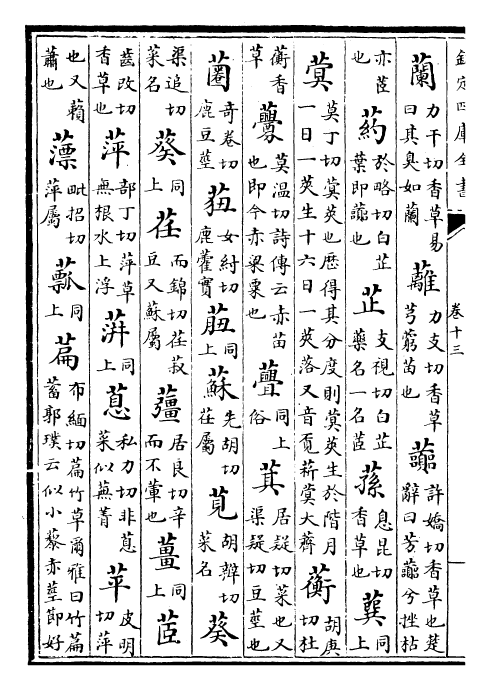 欽定四庫全書 卷十三
蘭力干切香草易曰其臭如蘭 蘺力支切香草芎藭苗也 虈許嬌切香草也楚辭曰芳虈兮挫枯
亦茝也 葯於略切白芷葉即虈也 芷支視切白芷藥名一名茝 蓀息昆切香草也 同上
蓂莫丁切蓂莢也厯得其分度則蓂莢生於階月一日一莢生十六日一莢落又音覓菥蓂大薺 蘅胡庚切杜
蘅香草 虋莫温切詩傳云赤苗也即今赤粱粟也 同上俗 萁居疑切菜也又渠疑切豆莖也
蔨奇卷切鹿豆莖 莥女紂切鹿藿實 同上 蘇先胡切荏屬 莧胡辦切菜名 葵
渠追切菜名 葵同上 荏而錦切荏菽豆又蘇屬 䕬居良切辛而不葷也 薑同上 茝
齒改切香草也 萍部丁切萍草無根水上浮 蓱同上 蒠私力切菲蒠菜似蕪菁 苹皮明切萍
也又藾蕭也 薸毗招切萍屬 同上 萹布緬切萹竹草爾雅曰竹萹蓄郭璞云似小藜赤莖節好